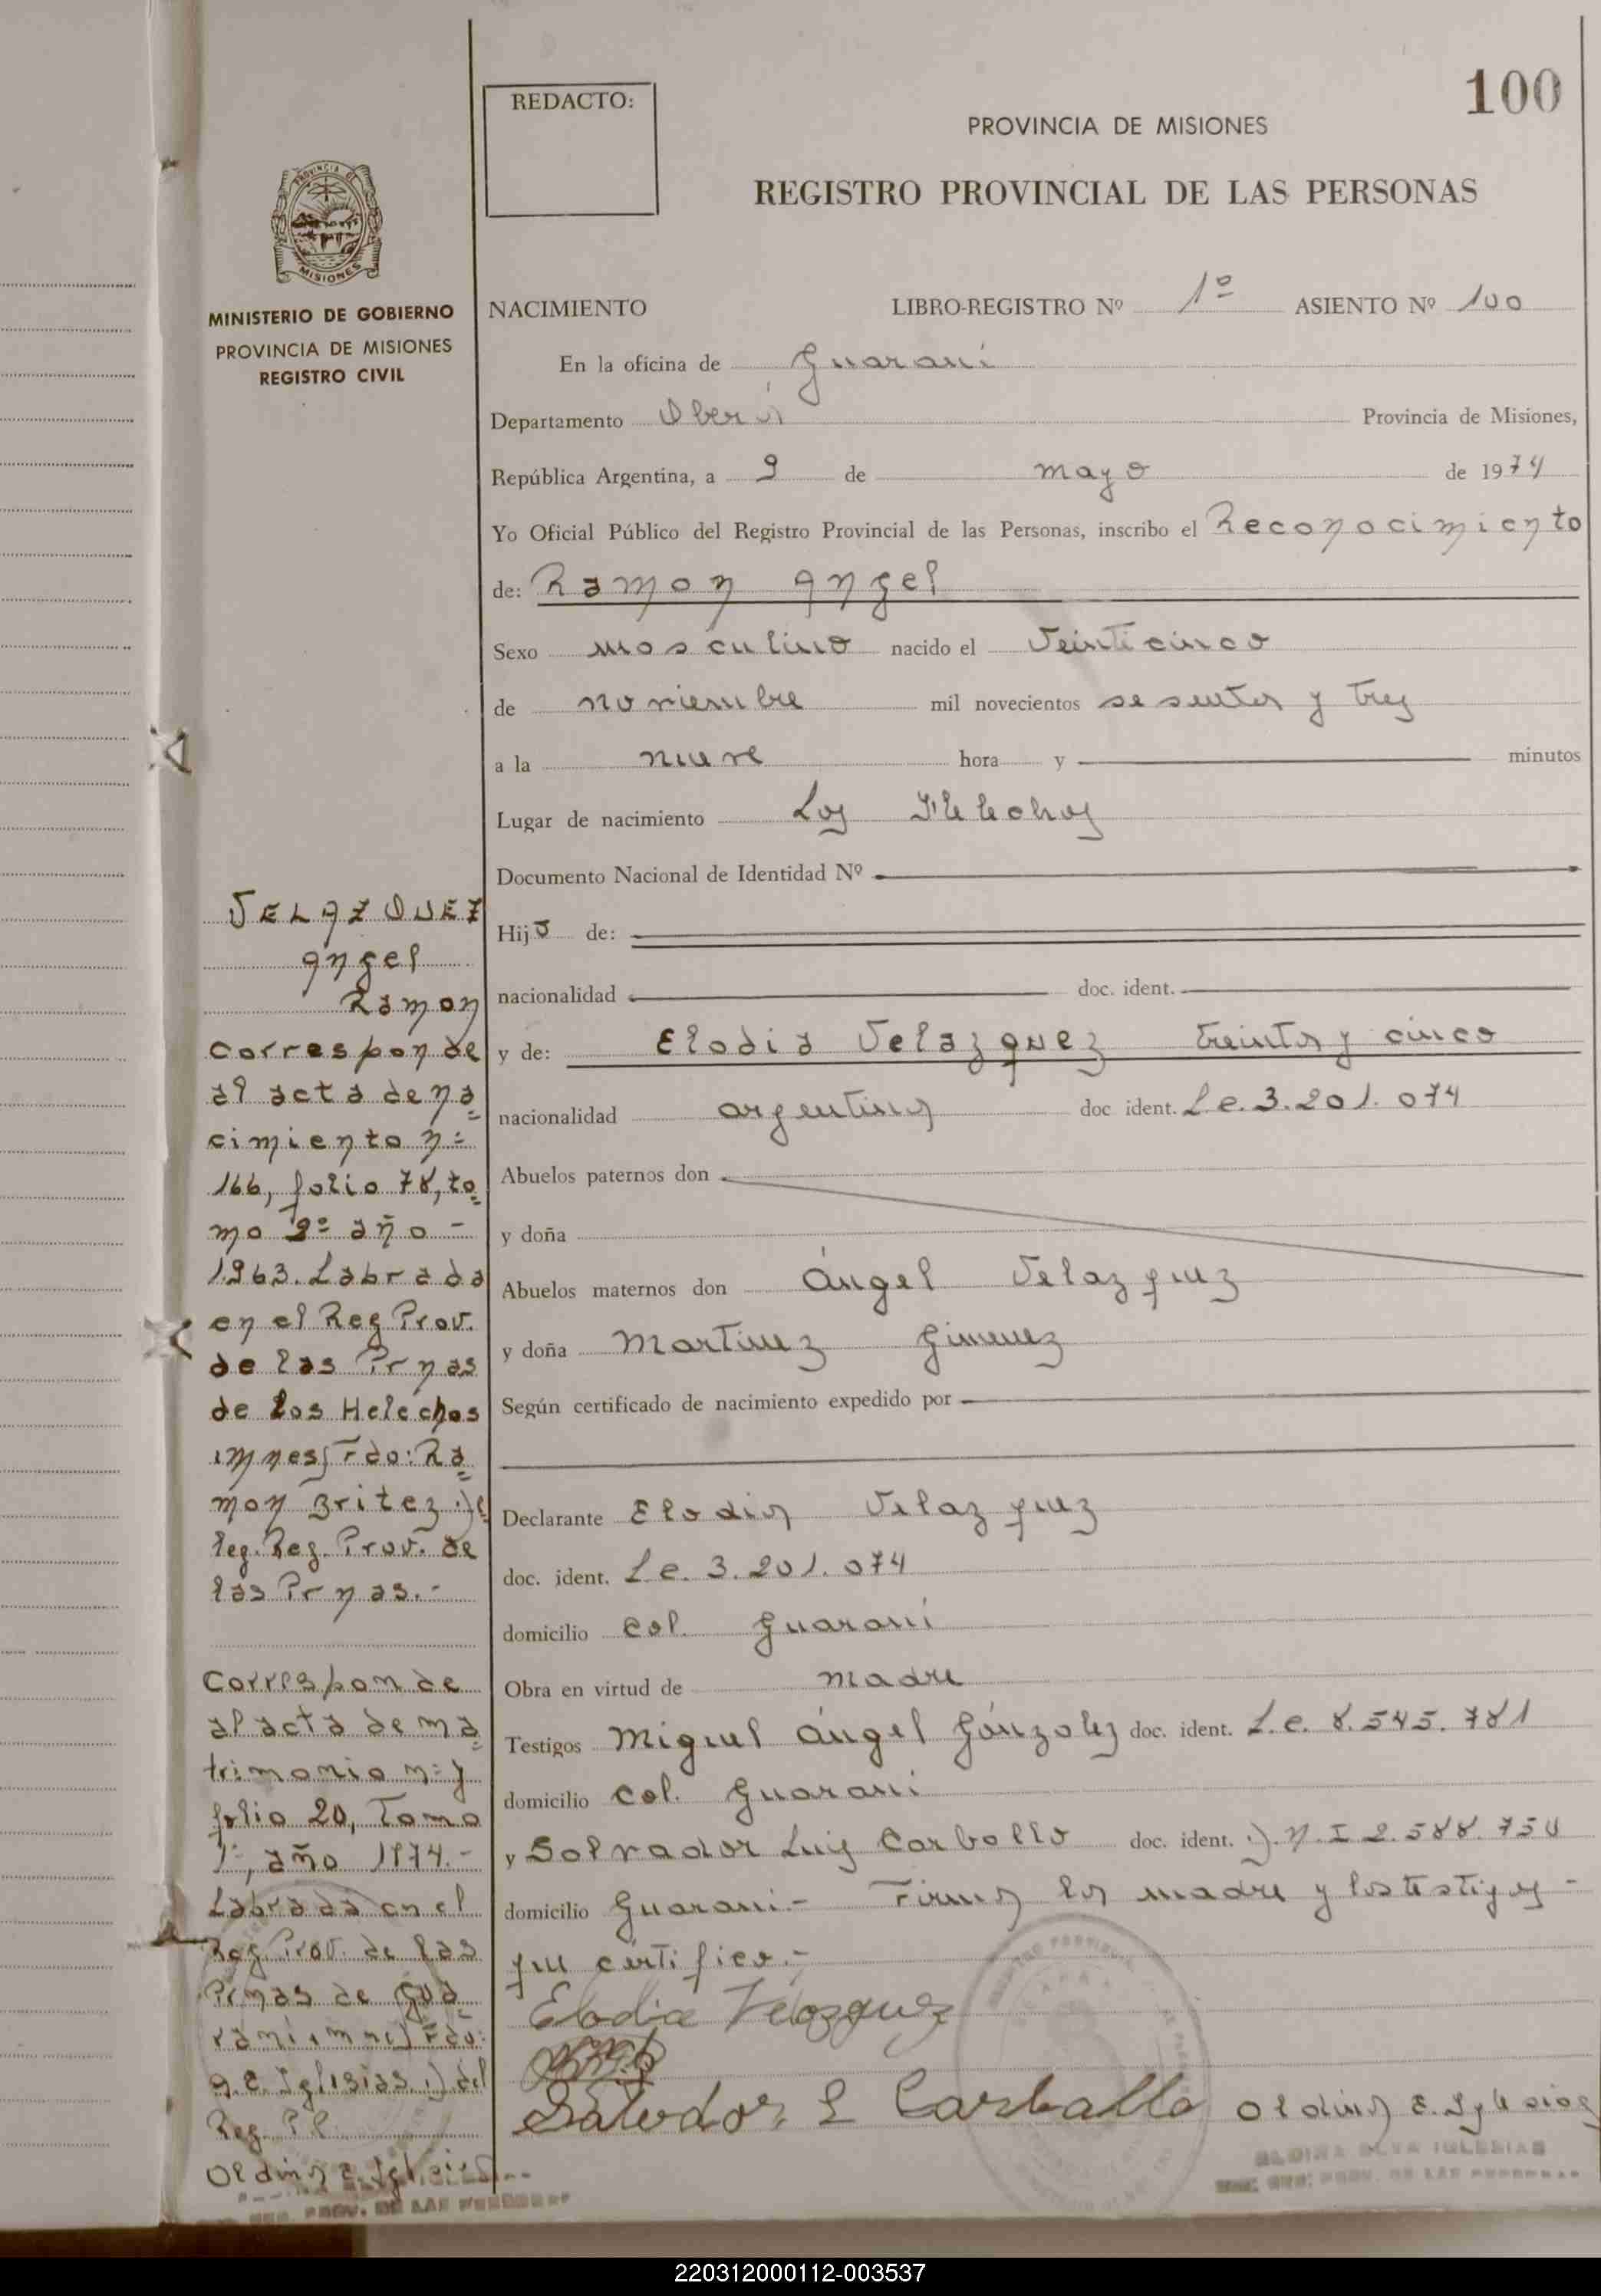 100
REDACTO:
PROVINCIA DE MISIONES
REGISTRO PROVINCIAL DE LAS PERSONAS
PROVINCIA DE
MISIONES
MINISTERIO DE GOBIERNO
PROVINCIA DE MISIONES
REGISTRO CIVIL
NACIMIENTO LIBRO-REGISTRO Nº 1º ASIENTO Nº 100
En la oficina de Guaraní
Departamento Oberá Provincia de Misiones,
República Argentina, a 9 de mayo de 1974
Yo Oficial Público del Registro Provincial de las Personas, inscribo el Reconocimiento
de: Ramon Angel
Sexo masculino nacido el Veinticinco
de noviembre mil novecientos sesenta y tres
a la nueve hora y minutos
Lugar de nacimiento Los Helechos
Documento Nacional de Identidad Nº
Hijo de:
nacionalidad doc. ident.
y de: Elodia Velazquez treinta y cinco
nacionalidad argentina doc ident. L.e. 3.201.074
Abuelos paternos don
y doña
Abuelos maternos don Ángel Velazquez
y doña Martinez Gimenez
Según certificado de nacimiento expedido por
Declarante Elodia Velazquez
doc. ident. L.e. 3.201.074
domicilio Col. Guaraní
Obra en virtud de madre
Testigos Miguel Ángel Gónzalez doc. ident. L.e. 8.545.781
domicilio Col. Guarani
y Salvador Luis Carballo doc. ident. D.N.I 2.588.750
domicilio Guarani.- Firma la madre y los testigos -
que certifico.-
Elodia Velazquez
Salvador L Carballo Oldina E. Iglesias
VELAZQUEZ
Angel
Ramon
Corresponde
al acta de na
cimiento n=
166, folio 78, to
mo 2º año -
1963. Labrada
en el Reg Prov.
de las Prnas
de Los Helechos
Fdo: Ra
mon Britez
Reg. Prov. de
las Prnas.-
Corresponde
al acta de ma
trimonio n=
folio 20, Tomo
1º, año 1974.-
Labrada en el
Reg. Prov. de las
Prnas de Gua
rani
Iglesias
Reg.
Oldina E. Iglesias
PROV. DE LAS PERSONAS
220312000112-003537